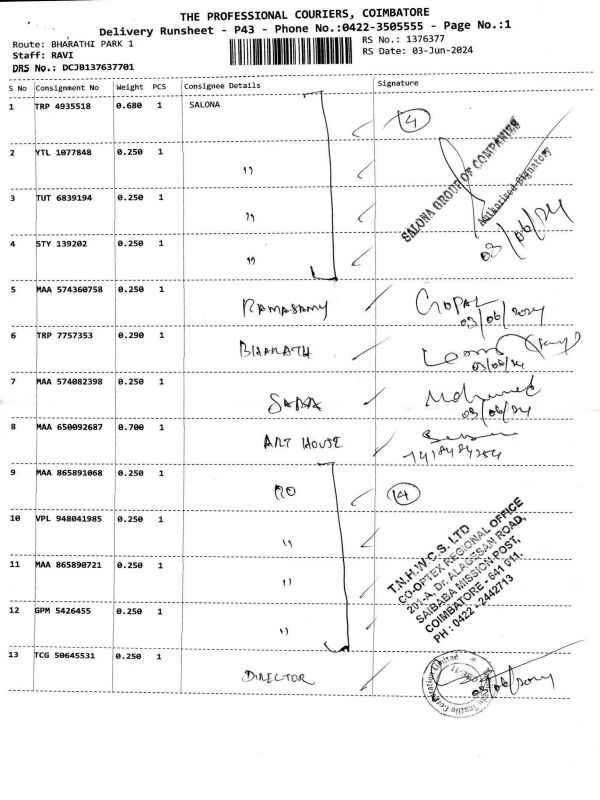 THE PROFESSIONAL COURIERS, COIMBATORE
Delivery Runsheet - P43 - Phone No.:0422-3505555 - Page No.:1
Route: BHARATHI PARK 1
RS No.: 1376377
Staff: RAVI
RS Date: 03-Jun-2024
DRS No.: DCJB137637701
S No Consignment No Weight PCS Consignee Details Signature
1 TRP 4935518 0.680 1 SALONA
4
SALONA GROUP OF COMPANIES
Authorised Signatory
03/06/24
2 YTL 1077848 0.250 1 "
3 TUT 6839194 0.250 1 "
4 STY 139202 0.250 1 "
5 MAA 574360758 0.250 1 RAMASAMY GOPAL
03/06/2024
6 TRP 7757353 0.290 1 BHARATH
03/06/24
7 MAA 574082398 0.250 1 SABA Mohamed
03/06/24
8 MAA 650092687 0.700 1 ART HOUSE
9 MAA 865891068 0.250 1 RO 14
10 VPL 948041985 0.250 1 "
11 MAA 865890721 0.250 1 "
12 GPM 5426455 0.250 1 "
T.N.H.W.C.S. LTD
CO-OPTEX REGIONAL OFFICE
201-A, Dr. ALAGESAN ROAD,
SAIBABA MISSION POST,
COIMBATORE - 641 011.
PH : 0422 - 2442713
13 TCG 50645531 0.250 1 DIRECTOR
03/06/2024